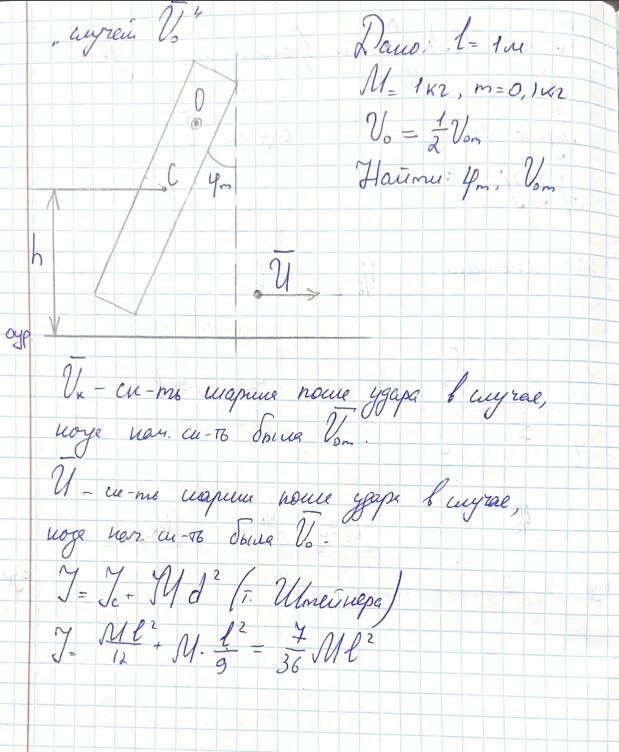 „случай V̅₀"
Дано: l = 1 м
M = 1 кг, m = 0,1 кг
V₀ = 1/2 V₀ₘ
Найти: φₘ; V₀ₘ
O
φₘ
C
h
U̅
V̅ₖ – ск-ть шарика после удара в случае,
когда нач. ск-ть была V̅₀ₘ.
U̅ – ск-ть шарика после удара в случае,
когда нач. ск-ть была V̅₀.
J = J_c + Md² (т. Штейнера)
J = Ml²/12 + M · l²/9 = 7/36 Ml²